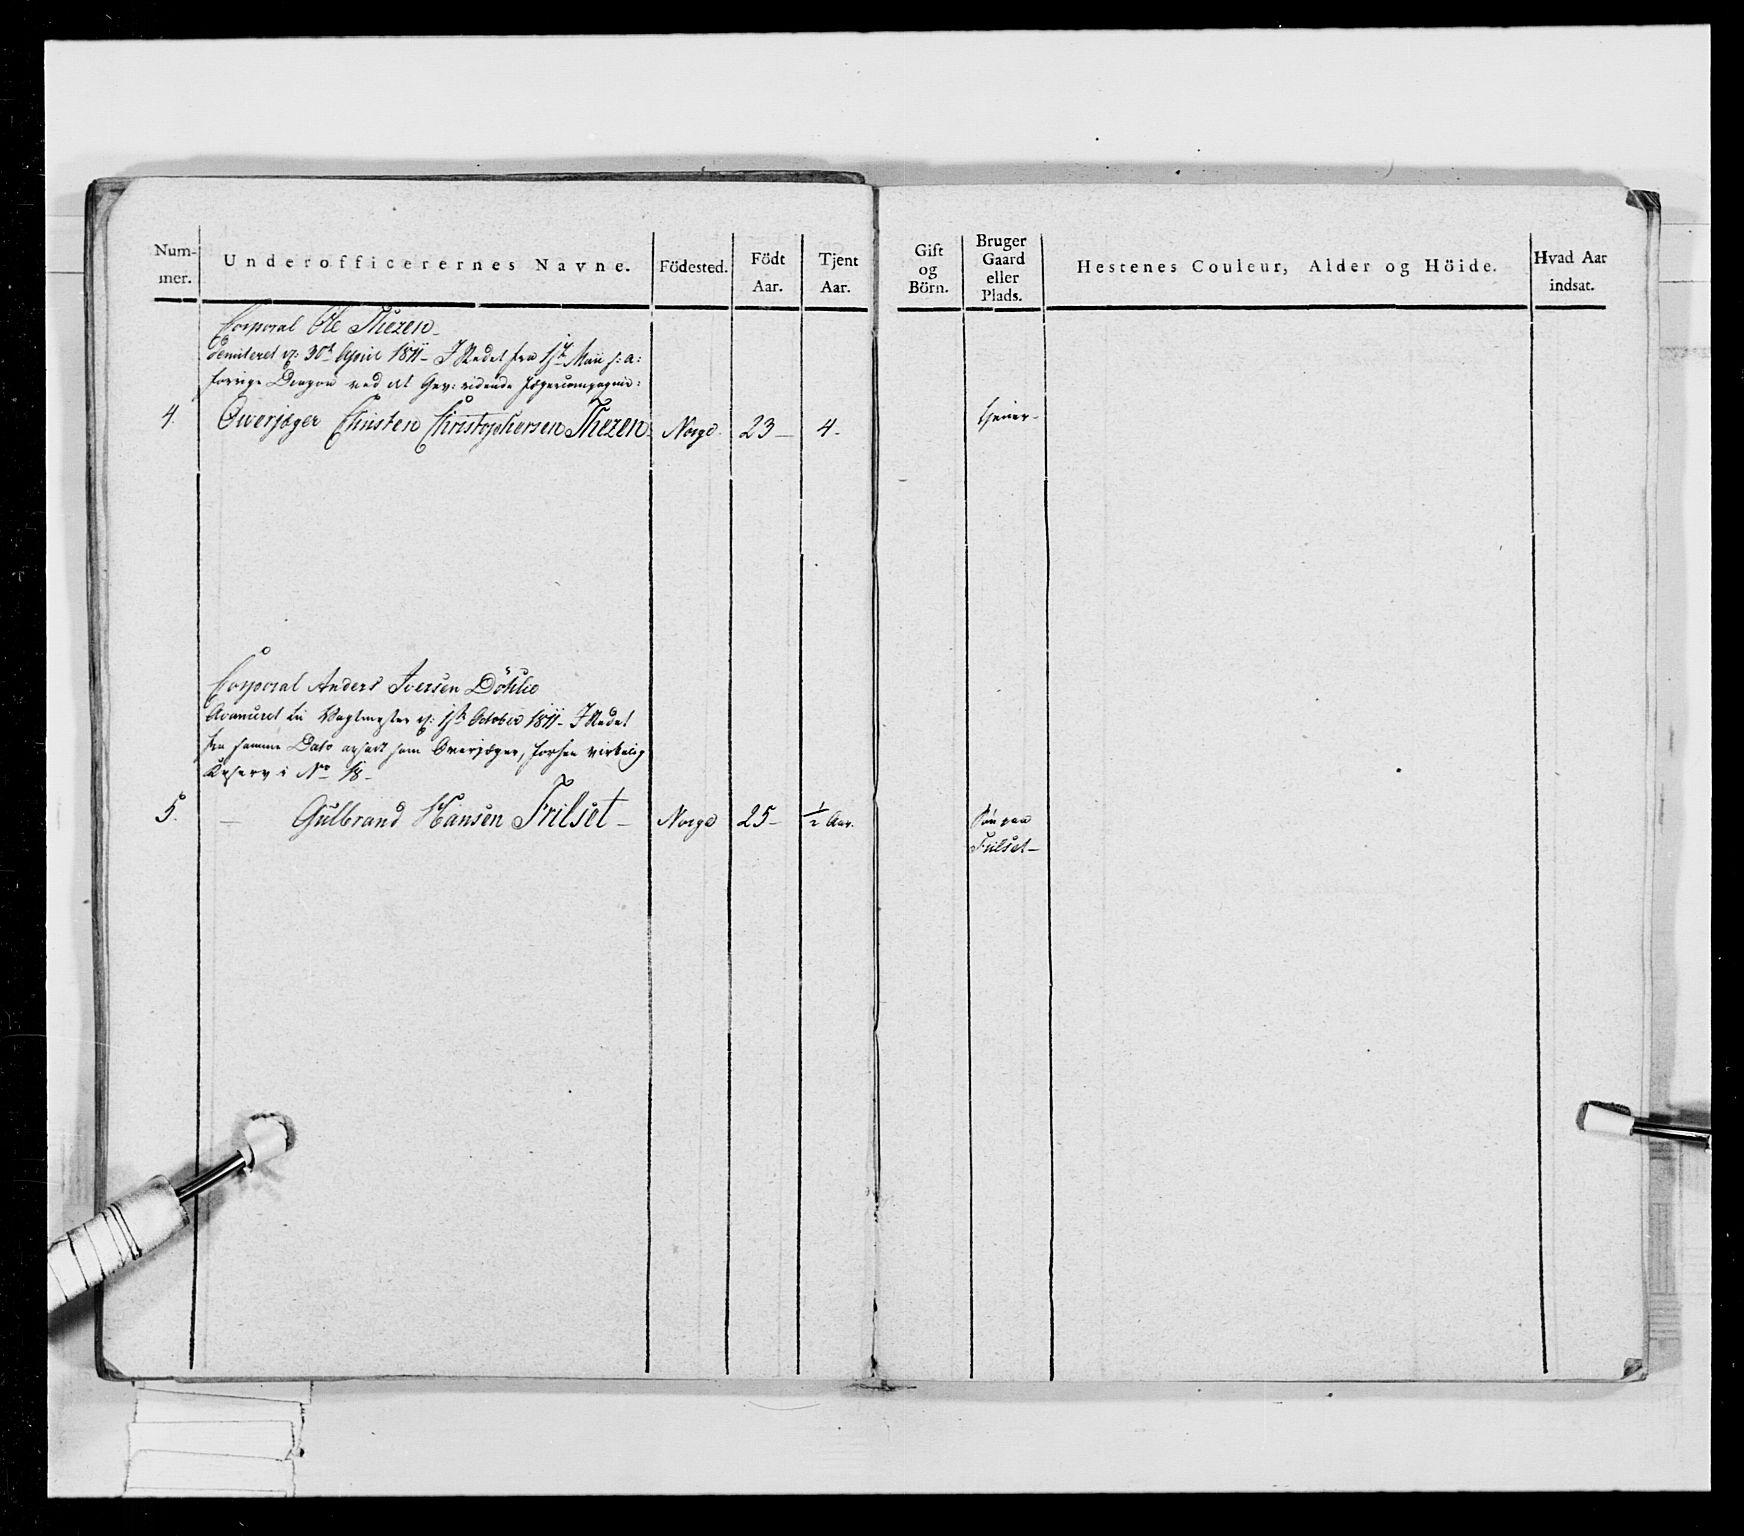 Num-
mer.
Underofficerernes Navne.
Födested.
Födt
Aar.
Tjent
Aar.
Gift
og
Börn.
Bruger
Gaard
eller
Plads.
Hestenes Couleur, Alder og Höide.
Hvad Aar
indsat.
Corporal Ole Thezen
30t April 1811 - I Stedet fra 1ste Maii s: a:
forrige Dragon ved det Gev: ridende Jægercompagnie:
4. Overjæger Christen Christophersen Thezen Norge 23 4 tjener
Corporal Anders Iversen Döhlie
Avanceret til Vagtmester 1ste October 1811 - I Stedet
fra samme Dato ansadt som Overjæger, forhen virkelig
Reserv i No 18
5. — Gulbrand Hansen Frilset Norge 25 ½ Aar. Sön paa
Frilset